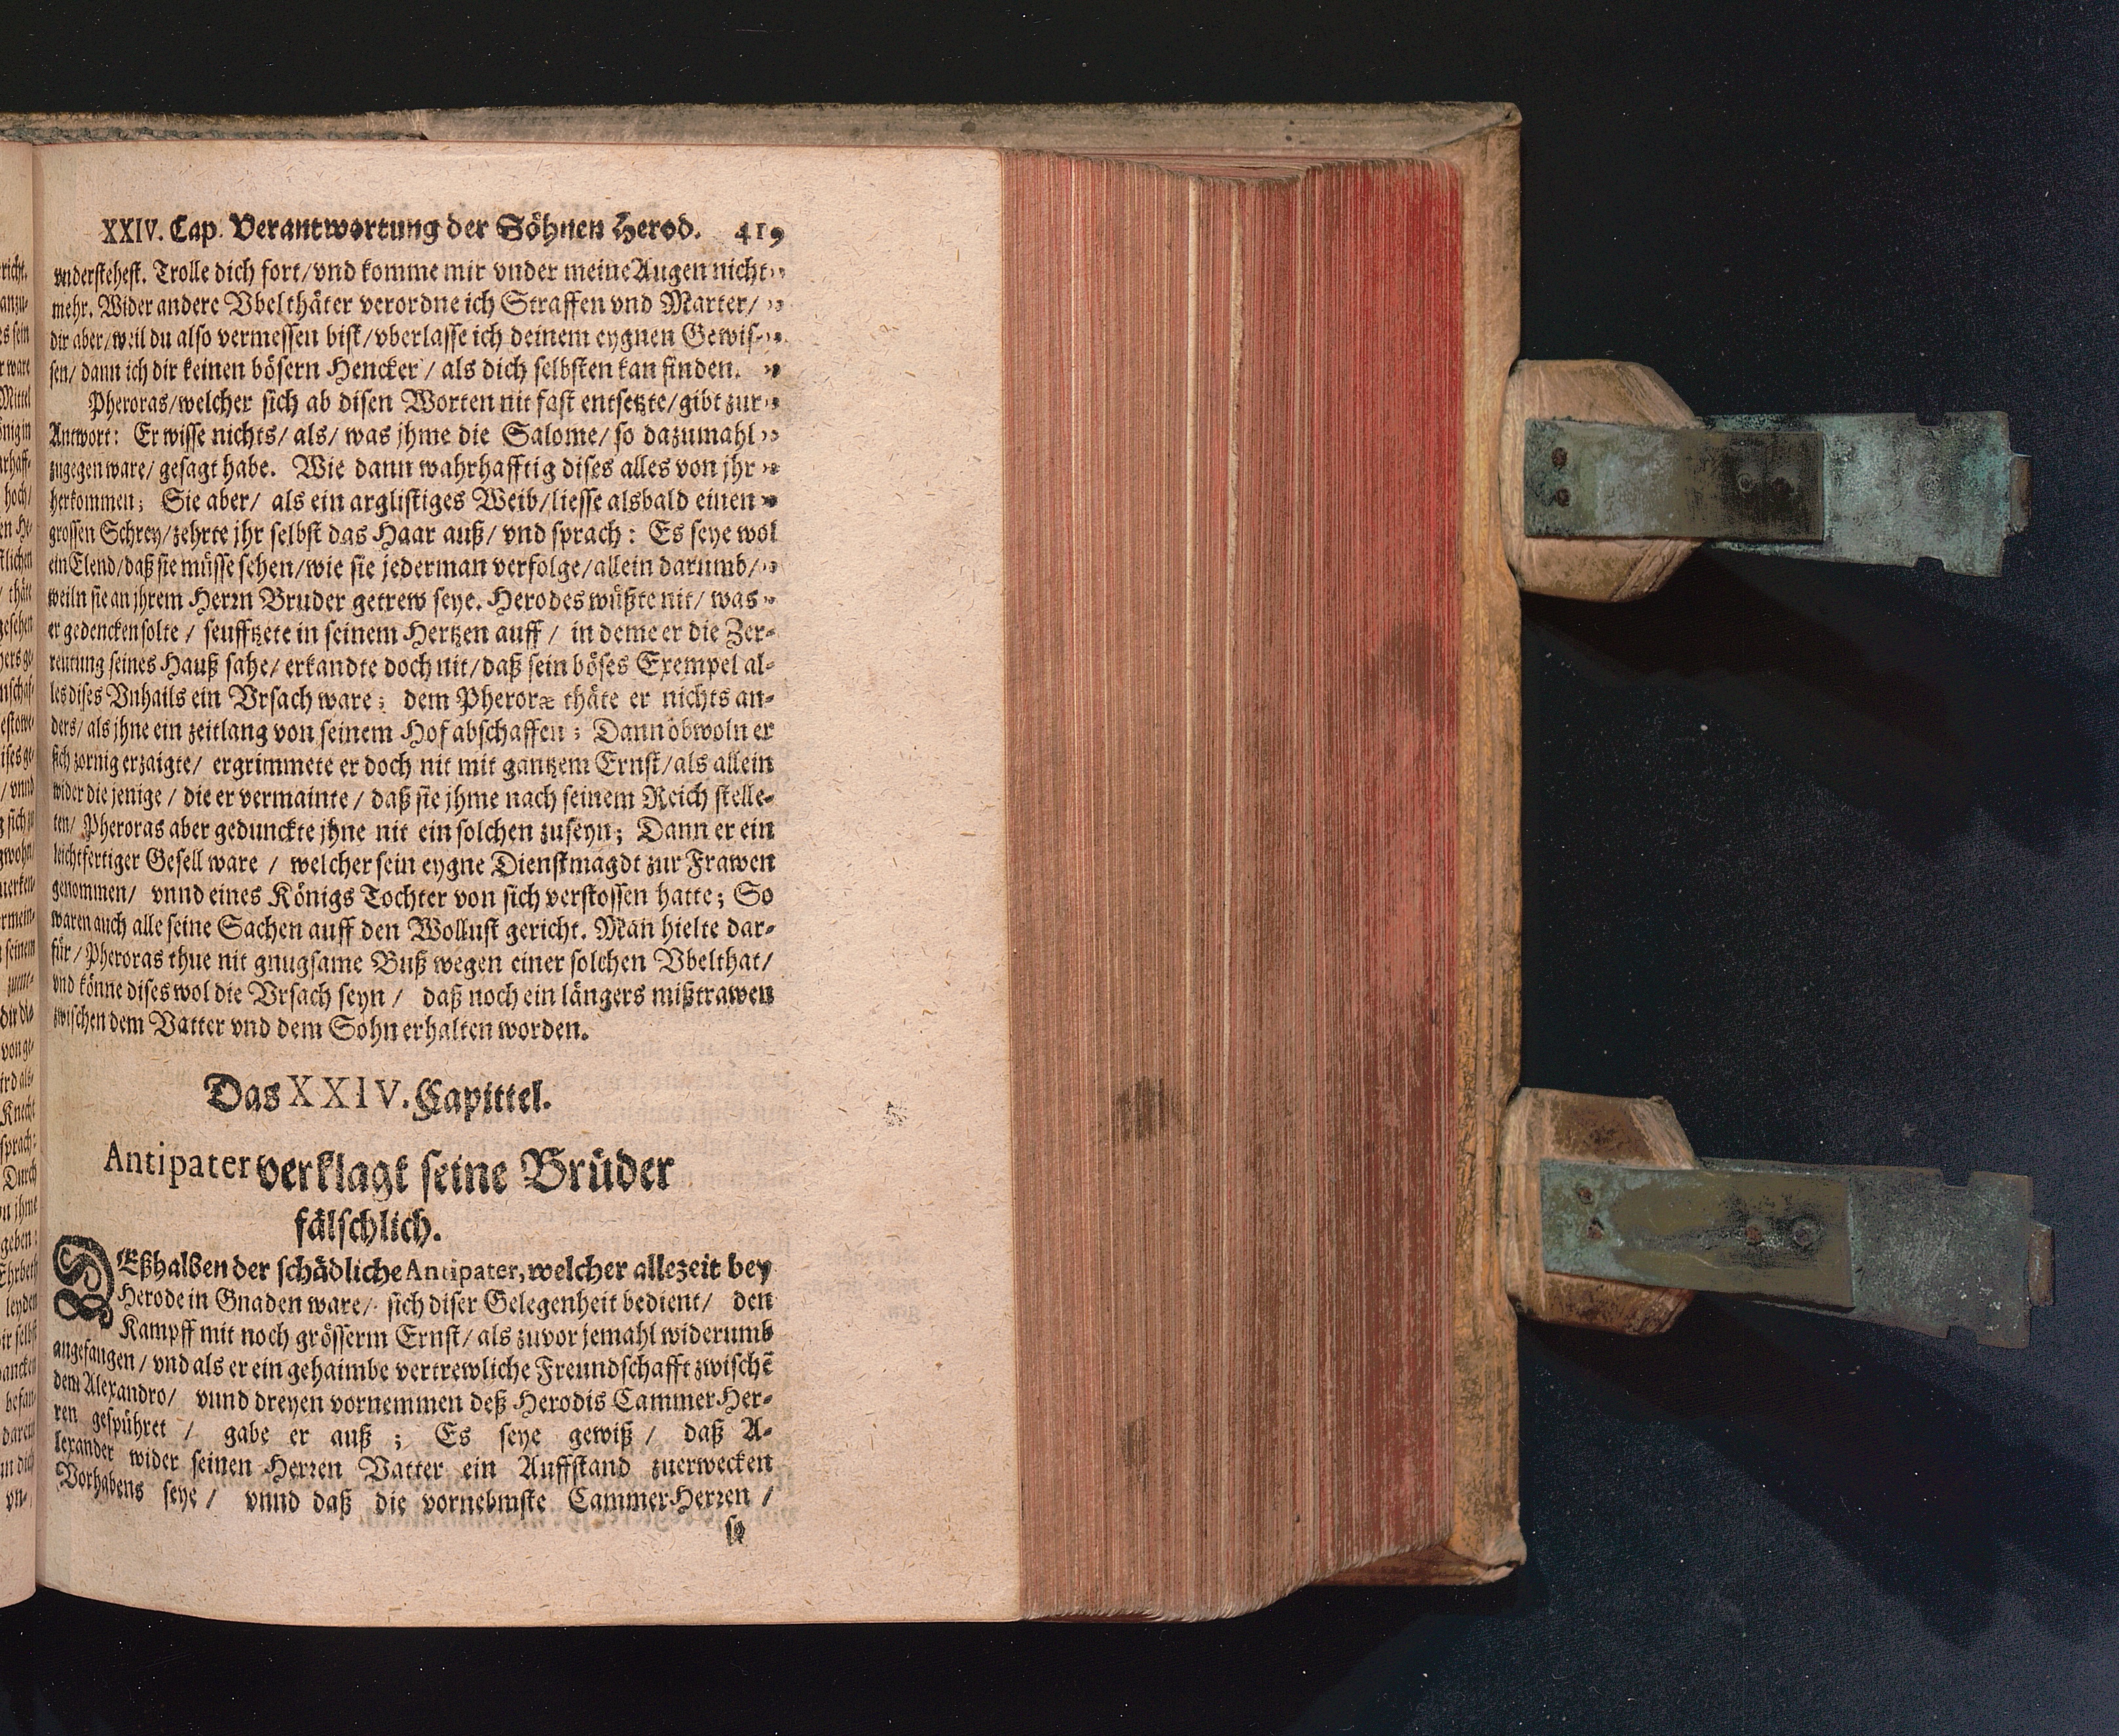 XXIV. Cap. Verantwortung der Söhnen Herod. 419
vnderstehest. Trolle dich fort/vnd komme mir vnder meine Augen nicht„
mehr. Wider andere Vbelthäter verordne ich Straffen vnd Marter/ „
dir aber/weil du also vermessen bist/vberlasse ich deinem eygnen Gewis-„
sen/ dann ich dir keinen bösern Hencker / als dich selbsten kan finden. „
Pheroras/welcher sich ab disen Worten nit fast entsetzte/gibt zur„
Antwort: Er wisse nichts/ als/ was jhme die Salome/ so dazumahl„
zugegen ware/ gesagt habe. Wie dann wahrhafftig dises alles von jhr„
herkommen; Sie aber/ als ein arglistiges Weib/liesse alsbald einen„
grossen Schrey/zehrte jhr selbst das Haar auß/ vnd sprach: Es seye wol
ein Elend/daß sie müsse sehen/wie sie jederman verfolge/allein darumb/„
weiln sie an jhrem Herrn Bruder getrew seye. Herodes wüßte nit/ was„
er gedencken solte / seufftzete in seinem Hertzen auff / in deme er die Zer-
reutung seines Hauß sahe/ erkandte doch nit/daß sein böses Exempel al-
les dises Vnhails ein Vrsach ware; dem Pheroræ thäte er nichts an-
ders/ als jhne ein zeitlang von seinem Hof abschaffen; Dann obwoln er
sich zornig erzaigte/ ergrimmete er doch nit mit gantzem Ernst/als allein
wider die jenige / die er vermainte / daß sie jhme nach seinem Reich stelle-
ten/ Pheroras aber gedunckte jhne nit ein solchen zuseyn; Dann er ein
leichtfertiger Gesell ware / welcher sein eygne Dienstmagdt zur Frawen
genommen/ vnnd eines Königs Tochter von sich verstossen hatte; So
waren auch alle seine Sachen auff den Wollust gericht. Man hielte dar-
für/ Pheroras thue nit gnugsame Buß wegen einer solchen Vbelthat/
vnd könne dises wol die Vrsach seyn / daß noch ein längers mißtrawen
zwischen dem Vatter vnd dem Sohn erhalten worden.
Das XXIV. Capittel.
Antipater verklagt seine Brüder
fälschlich.
DEßhalben der schädliche Antipater, welcher allezeit bey
Herode in Gnaden ware/ sich diser Gelegenheit bedient/ den
Kampff mit noch grösserm Ernst/ als zuvor jemahl widerumb
angefangen / vnd als er ein gehaimbe vertrewliche Freundschafft zwischē
dem Alexandro/ vnnd dreyen vornemmen deß Herodis Cammer Her-
ren gespühret / gabe er auß ; Es seye gewiß / daß A-
lexander wider seinen Herren Vatter ein Auffstand zuerwecken
Vorhabens seye / vnnd daß die vornebmste Cammer Herren /
se